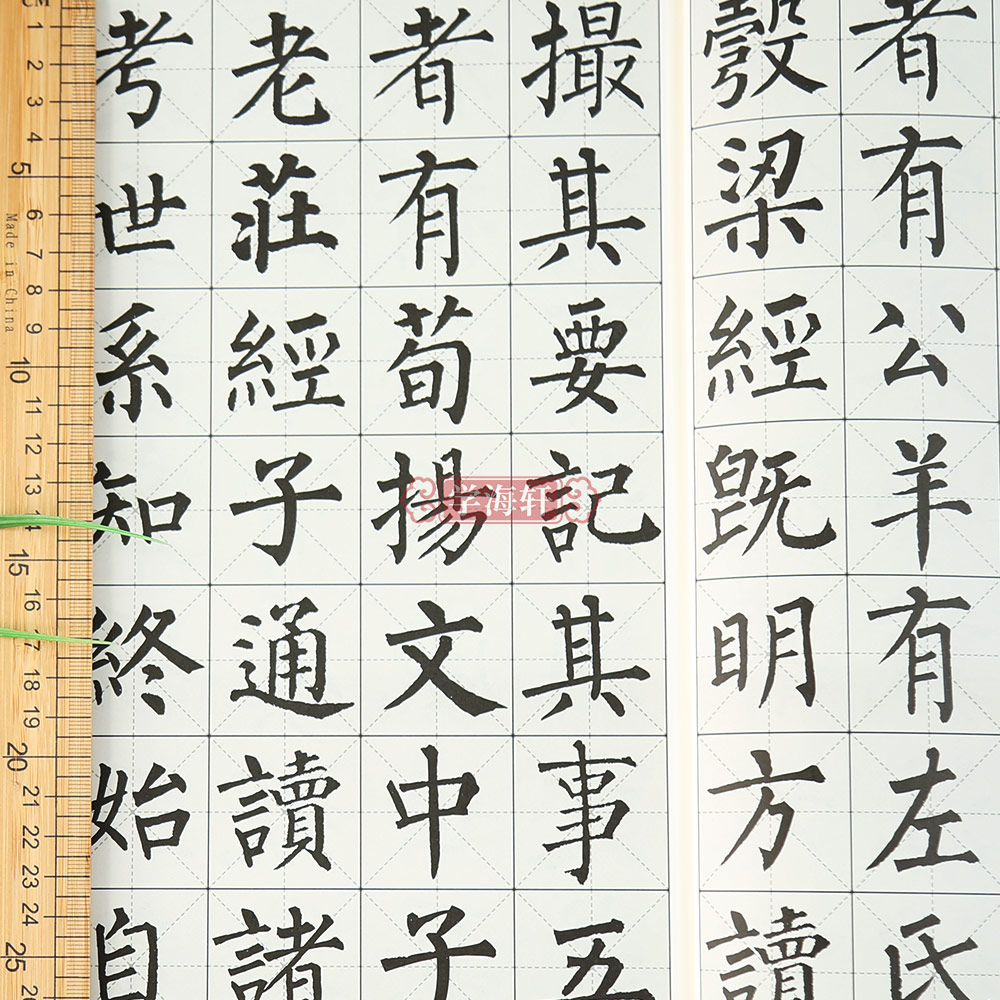 者有公羊有左氏
梁經既眀方讀
撮其要記其事五
者有荀揚文中子
老莊經子通讀諸
考世系知終始自
学海轩
Made in China
1 2 3 4 5 6 7 8 9 10 11 12 13 14 15 16 17 18 19 20 21 22 23 24 25